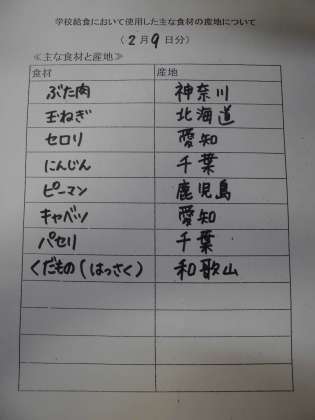 学校給食において使用した主な食材の産地について
(2月9日分)
≪主な食材と産地≫
食材 産地
ぶた肉 神奈川
玉ねぎ 北海道
セロリ 愛知
にんじん 千葉
ピーマン 鹿児島
キャベツ 愛知
パセリ 千葉
くだもの(はっさく) 和歌山